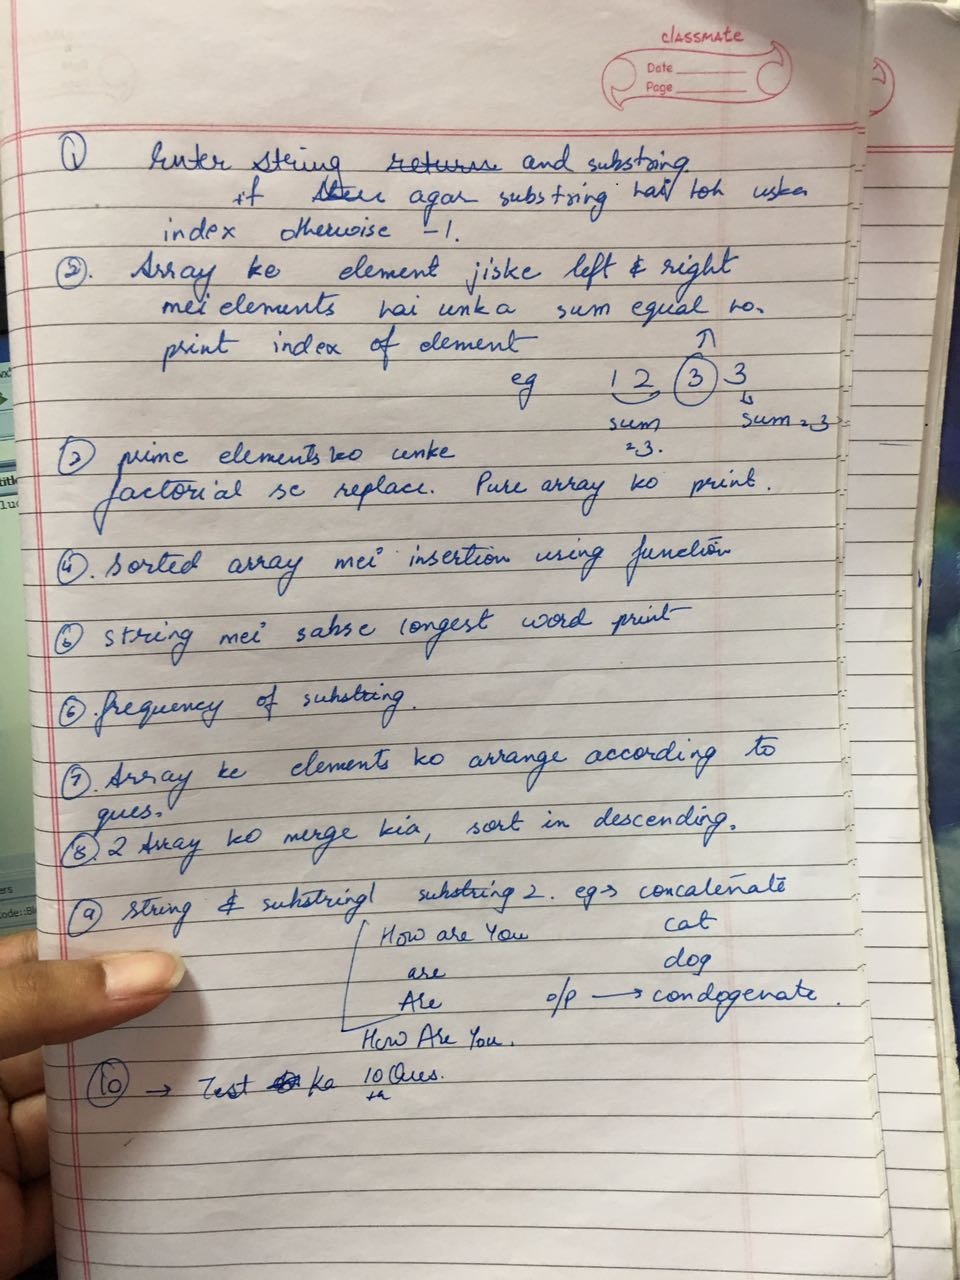 classmate
Date
Page
① Enter string return and substring
if agar substring hai toh uska
index otherwise -1.
②. Array ke element jiske left & right
mei elements hai unka sum equal ho.
print index of element
eg 1 2 3 3
sum sum = 3
=3.
③ prime elements ko unke
factorial se replace. Pure array ko print.
④. sorted array mei insertion using function
⑤ string mei sabse longest word print
⑥. frequency of substring.
⑦. Array ke elements ko arrange according to
ques.
⑧. 2 Array ko merge kia, sort in descending.
⑨ string & substring1 substring 2. eg→ concatenate
How are You cat
are dog
Are o/p → condogenate.
How Are You.
⑩ → Test ka 10 Ques.
th